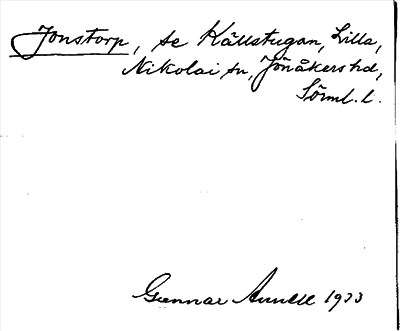 Jonstorp, se Källstugan, Lilla,
Nikolai sn, Jönåkers hd,
Sörml. l.
Gunnar Annell 1933